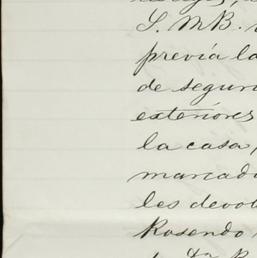 S. M. B.
previa la
de segur
exteriores
la casa,
marcado
les devol
Rosendo